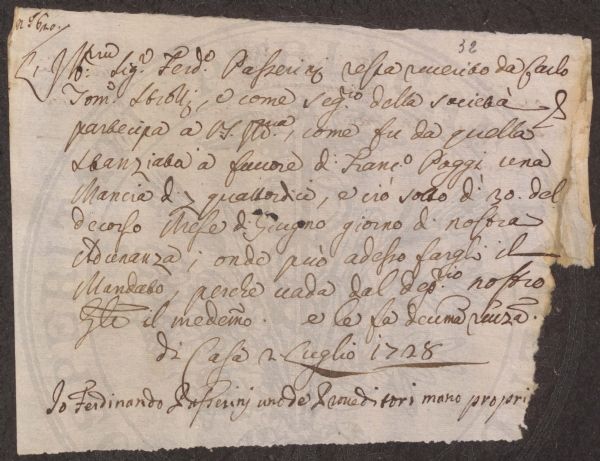 32
Ill.mo Sig.r Ferd.o Passerini resta riverito da Carlo
Tom.o Strozzi, e come seg.rio della società
partecipa a VS. Ill.ma, come fu da quella
stanziata a favore di Franc.o Poggi una
Mancia di quattordici, e ciò sotto dì 20. del
decorso Mese di Giugno giorno di nostra
Adunanza; onde può adesso fargli il
Mandato, perche vada dal dep.rio nostro
il medemo. e le fa devma Rivza.
di Casa 2 Luglio 1728
Io Ferdinando Passerini uno de Proveditori mano propri